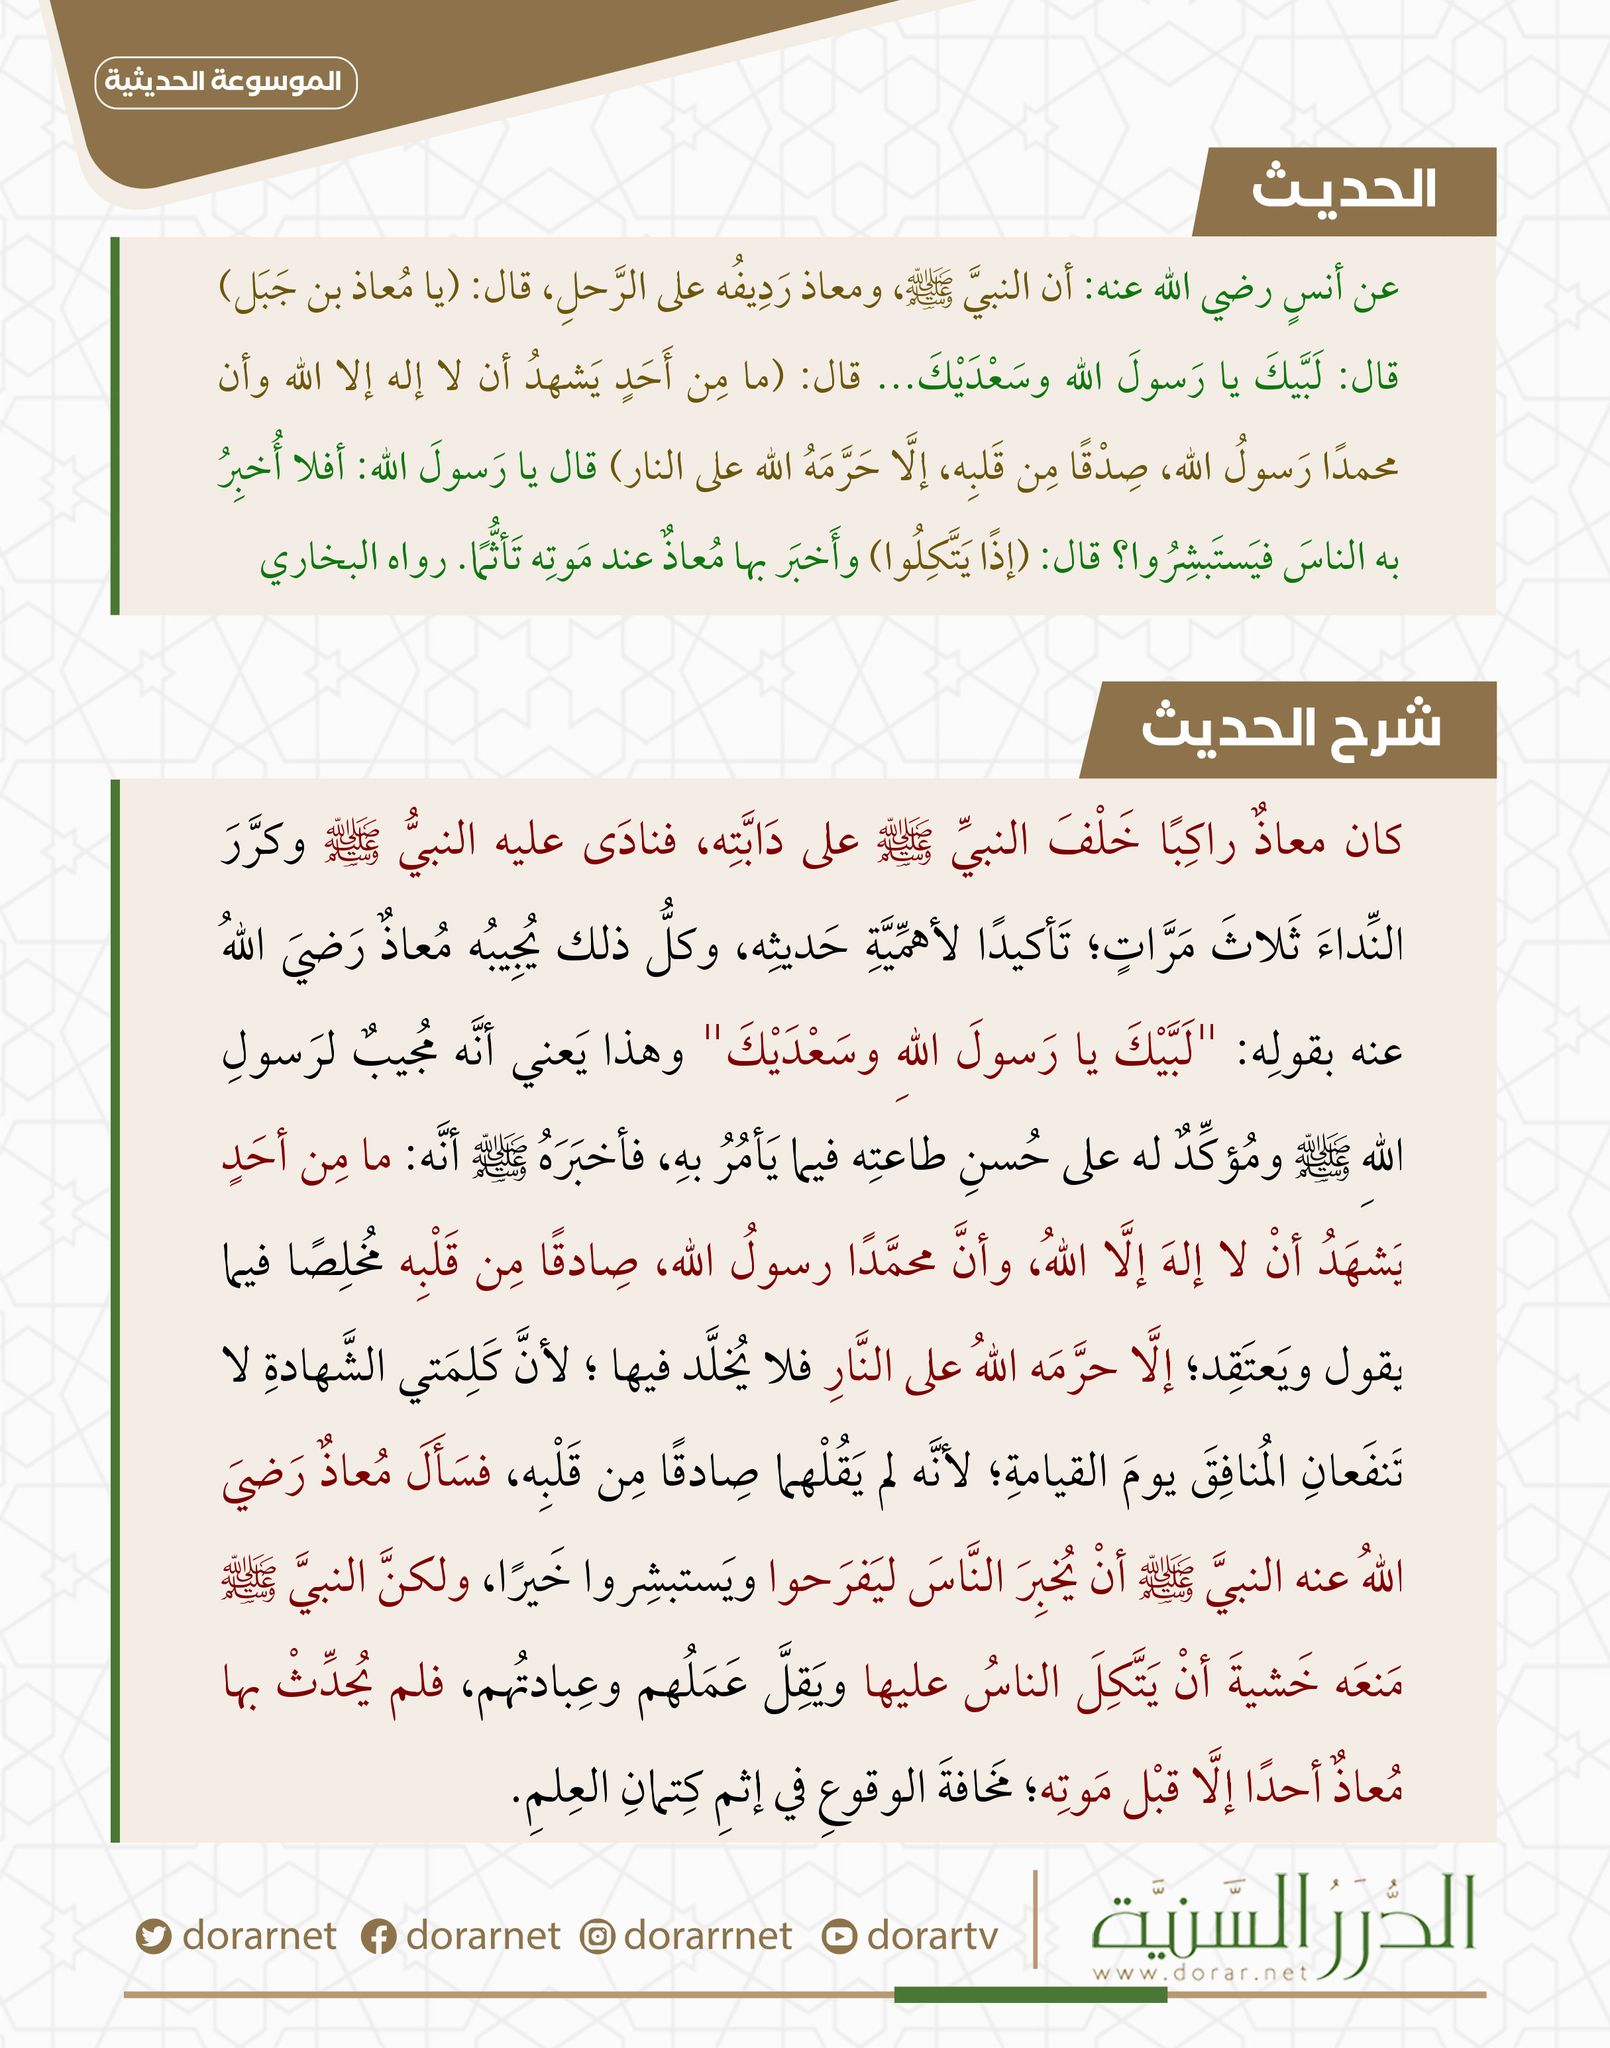 الموسوعة الحديثية
الحديث
عن أنسٍ رضي الله عنه: أن النبيَّ ﷺ، ومعاذ رَدِيفُه على الرَّحلِ، قال: (يا مُعاذ بن جَبَل)
قال: لَبَّيكَ يا رَسولَ الله وسَعْدَيْكَ... قال: (ما مِن أَحَدٍ يَشهدُ أن لا إله إلا الله وأن
محمدًا رَسولُ الله، صِدْقًا مِن قَلبِه، إلَّا حَرَّمَهُ الله على النار) قال يا رَسولَ الله: أفلا أُخبِرُ
به الناسَ فيَستَبشِرُوا؟ قال: (إذًا يَتَّكِلُوا) وأَخبَر بها مُعاذٌ عند مَوتِه تَأثُّمًا. رواه البخاري
شرح الحديث
كان معاذٌ راكِبًا خَلْفَ النبيِّ ﷺ على دَابَّتِه، فنادَى عليه النبيُّ ﷺ وكرَّرَ
النِّداءَ ثَلاثَ مَرَّاتٍ؛ تَأكيدًا لأهمِّيَّةِ حَديثِه، وكلُّ ذلك يُجِيبُه مُعاذٌ رَضيَ اللهُ
عنه بقولِه: "لَبَّيْكَ يا رَسولَ اللهِ وسَعْدَيْكَ" وهذا يَعني أنَّه مُجيبٌ لرَسولِ
اللهِ ﷺ ومُؤكِّدٌ له على حُسنِ طاعتِه فيما يَأمُرُ بهِ، فأخبَرَهُ ﷺ أنَّه: ما مِن أحَدٍ
يَشهَدُ أنْ لا إلهَ إلَّا اللهُ، وأنَّ محمَّدًا رسولُ الله، صِادقًا مِن قَلْبِه مُخلِصًا فيما
يقول ويَعتَقِد؛ إلَّا حرَّمَه اللهُ على النَّارِ فلا يُخلَّد فيها ؛ لأنَّ كَلِمَتي الشَّهادةِ لا
تَنفَعانِ المُنافِقَ يومَ القيامةِ؛ لأنَّه لم يَقُلْهما صِادقًا مِن قَلْبِه، فسَأَلَ مُعاذٌ رَضيَ
اللهُ عنه النبيَّ ﷺ أنْ يُخبِرَ النَّاسَ ليَفرَحوا ويَستبشِروا خَيرًا، ولكنَّ النبيَّ ﷺ
مَنعَه خَشيةَ أنْ يَتَّكِلَ الناسُ عليها ويَقِلَّ عَمَلُهم وعِبادتُهم، فلم يُحدِّثْ بها
مُعاذٌ أحدًا إلَّا قبْل مَوتِه؛ مَخافةَ الوقوعِ في إثمِ كِتمانِ العِلمِ.
الدُّرَرُ السَّنِيَّة
www.dorar.net
dorarnet dorarnet dorarrnet dorartv